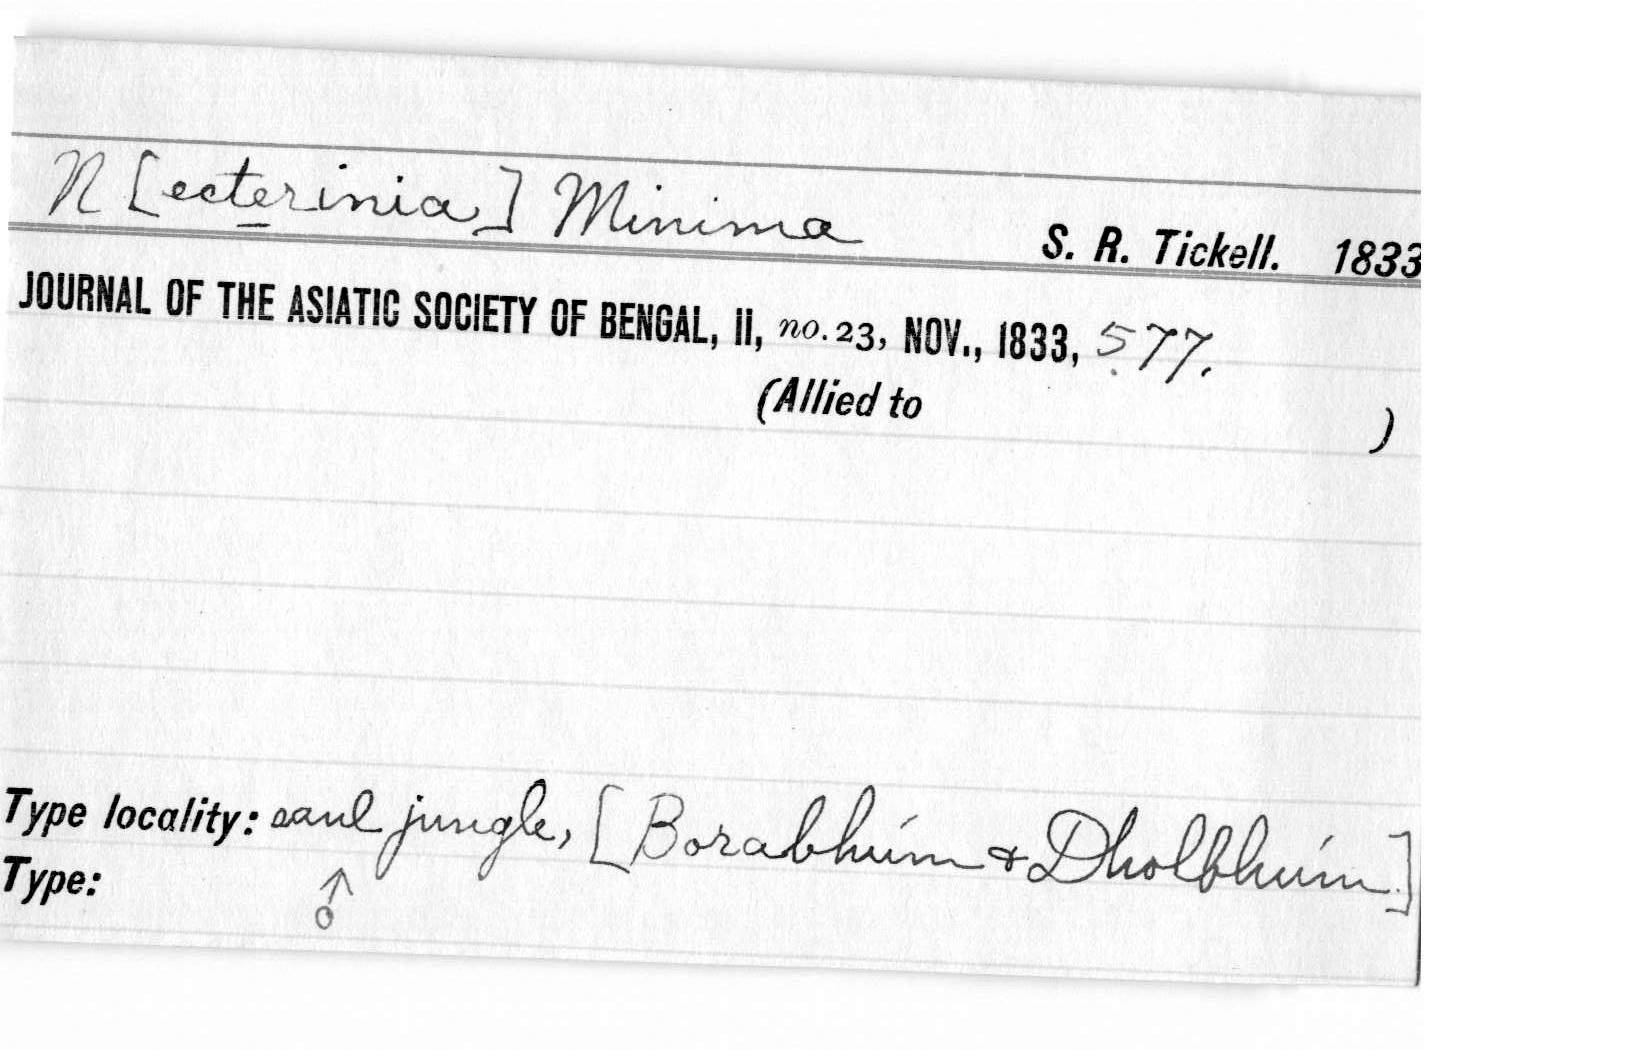 N[ecterinia] Minima S. R. Tickell. 1833
JOURNAL OF THE ASIATIC SOCIETY OF BENGAL, II, no. 23, NOV., 1833, 577.
(Allied to )
Type locality: saul jungle, [Borabhúm & Dholbhúm]
Type: ♂